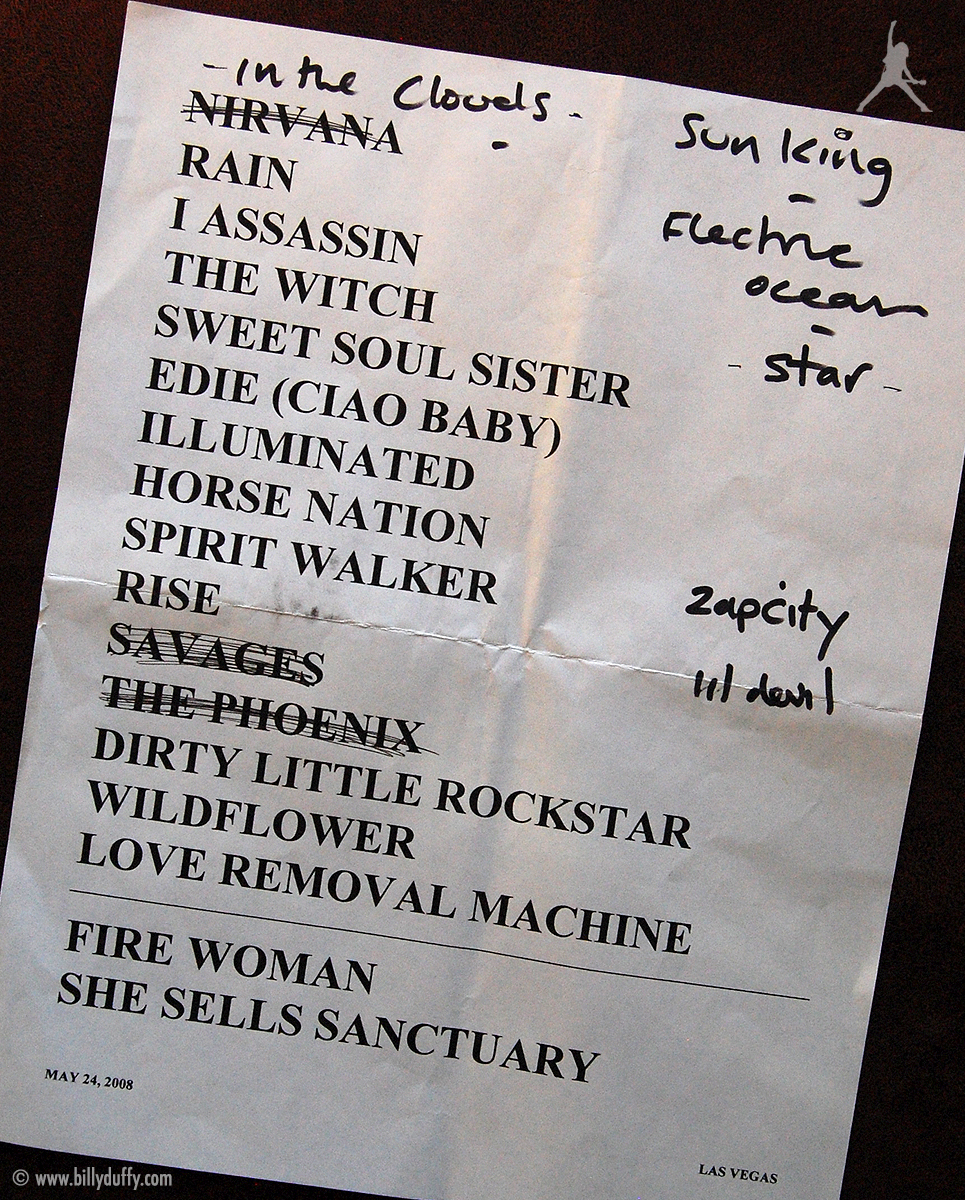 - In the Clouds -
NIRVANA
RAIN
I ASSASSIN
THE WITCH
SWEET SOUL SISTER
EDIE (CIAO BABY)
ILLUMINATED
HORSE NATION
SPIRIT WALKER
RISE
SAVAGES
THE PHOENIX
DIRTY LITTLE ROCKSTAR
WILDFLOWER
LOVE REMOVAL MACHINE
FIRE WOMAN
SHE SELLS SANCTUARY
Sun King
-
Electric
ocean
-
- star -
Zapcity
lil devil
MAY 24, 2008
LAS VEGAS
© www.billyduffy.com